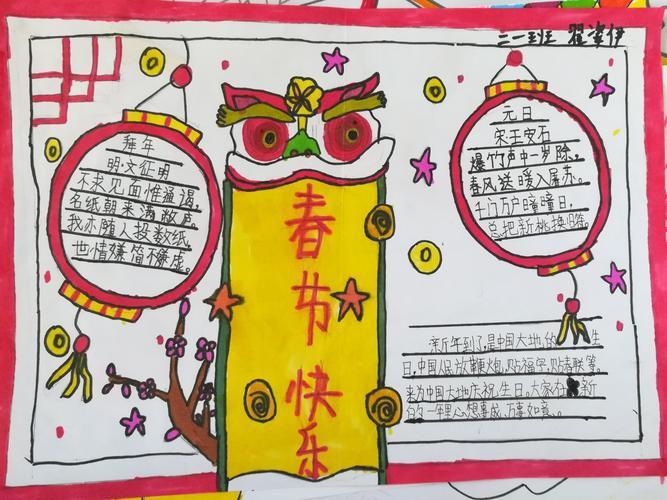 二一班 翟姿伊
拜年
明·文征明
不求见面惟通谒,
名纸朝来满敝庐。
我亦随人投数纸,
世情嫌简不嫌虚。
春节快乐
元日
宋王安石
爆竹声中一岁除,
春风送暖入屠苏。
千门万户曈曈日,
总把新桃换旧符。
新年到了,是中国大地的 生
日,中国人民放鞭炮,贴福字,贴春联等,
来为中国大地庆祝生日。大家在 新
的一年里心想事成,万事如意。